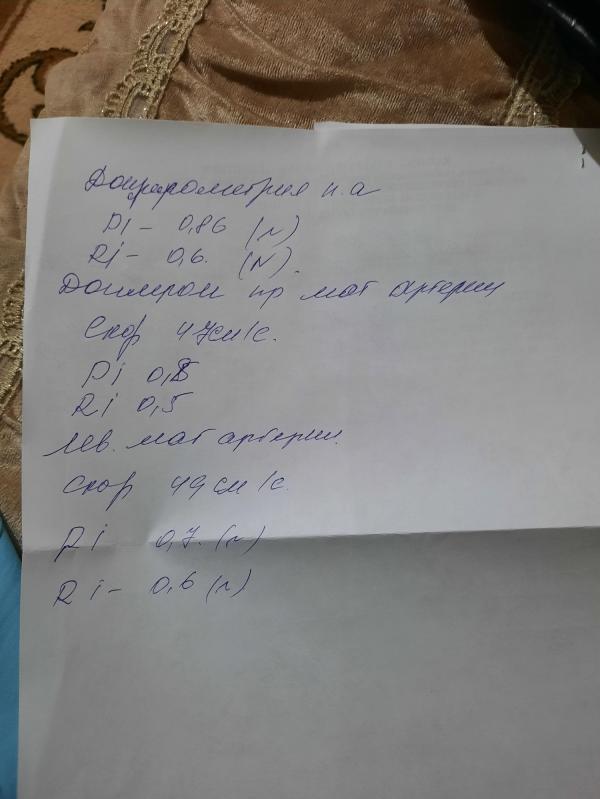 Допплерометрия п.а
Pi - 0,86 (N)
Ri - 0,6. (N).
Допплером пр мат артерии
Скор 47см/с.
Pi 0,8
Ri 0,5
Лев. мат артерии.
Скор 49см/с.
Pi 0,7. (N)
Ri - 0,6 (N)